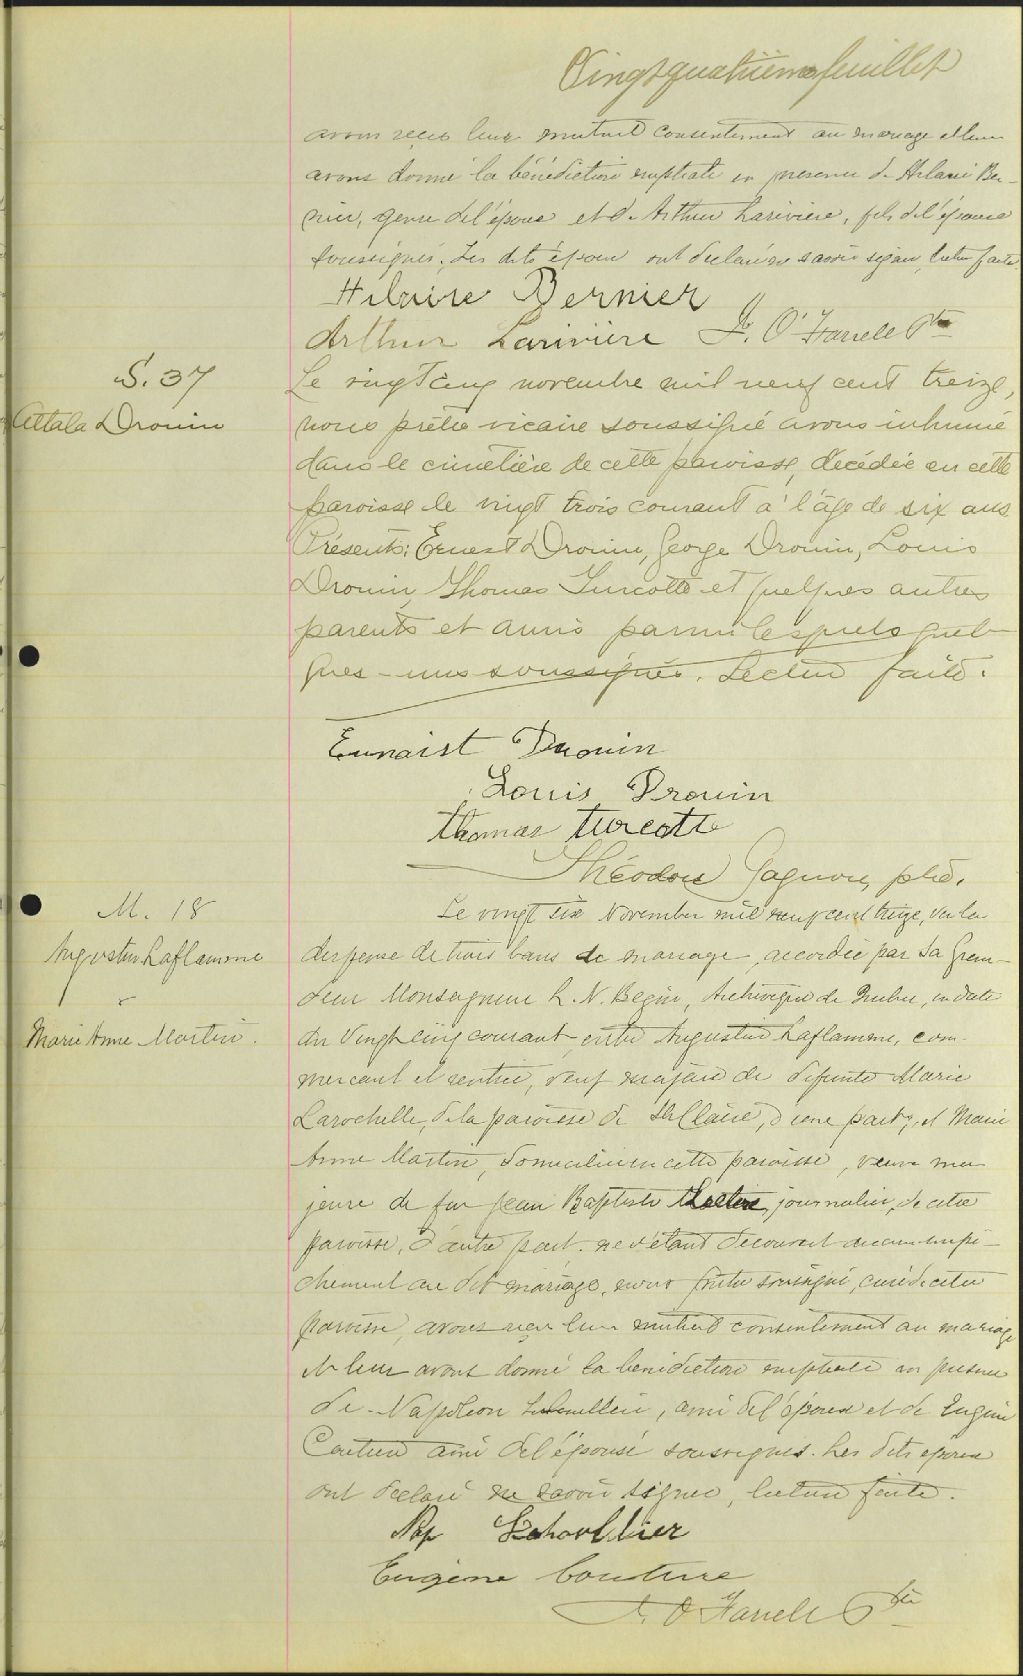 Vingtquatrième feuillet
avons reçu leur mutuel consentement au mariage et leur
avons donné la bénédiction nuptiale en présence de Hilaire Ber-
nier, genre de l'épouse et de Arthur Larivière, fils de l'épouse
soussignés. Les dits époux ont déclaré ne savoir signer, lecture faite.
Hilaire Bernier
Arthur Larivière J. O'Farrell Ptre
S. 37
Attala Drouin
Le vingt cinq novembre mil neuf cent treize,
nous prêtre vicaire soussigné avons inhumé
dans le cimetière de cette paroisse, décédée en cette
paroisse le vingt trois courant à l'âge de six ans
Présents: Ernest Drouin, George Drouin, Louis
Drouin, Thomas Turcotte et quelques autres
parents et amis parmi lesquels quel-
ques-uns soussignés. Lecture faite.
Ernaist Drouin
Louis Drouin
Thomas Turcotte
Théodore Gagnon, ptre.
M. 18
Augustin Laflamme
&
Marie Anne Martin.
Le vingt six November mil neuf cent treize, vu la
dispense de trois bans de mariage, accordée par Sa Gran-
deur Monseigneur L. N. Begin, Archevêque de Quebec, en date
du Vingt cinq courant, entre Augustin Laflamme, com-
mercant et rentier, veuf majeur de defunte Marie
Larochelle, de la paroisse de Ste Claire, d'une part; et Marie
Anne Martin, domiciliée en cette paroisse, veuve ma-
jeure de feu Jean Baptiste journalier, de cette
paroisse, d'autre part. ne s'étant découvert aucun empê-
chement au dit mariage, nous prêtre soussigné, curé de cette
paroisse, avons reçu leur mutuel consentement au mariage
et leur avons donné la bénédiction nuptiale en présence
de Napoleon, ami de l'époux et de Eugène
Couture ami de l'épouse soussignés. Les dits époux
ont déclaré ne savoir signer, lecture faite.
Nap
Eugène Couture
J. O'Farrell Ptre